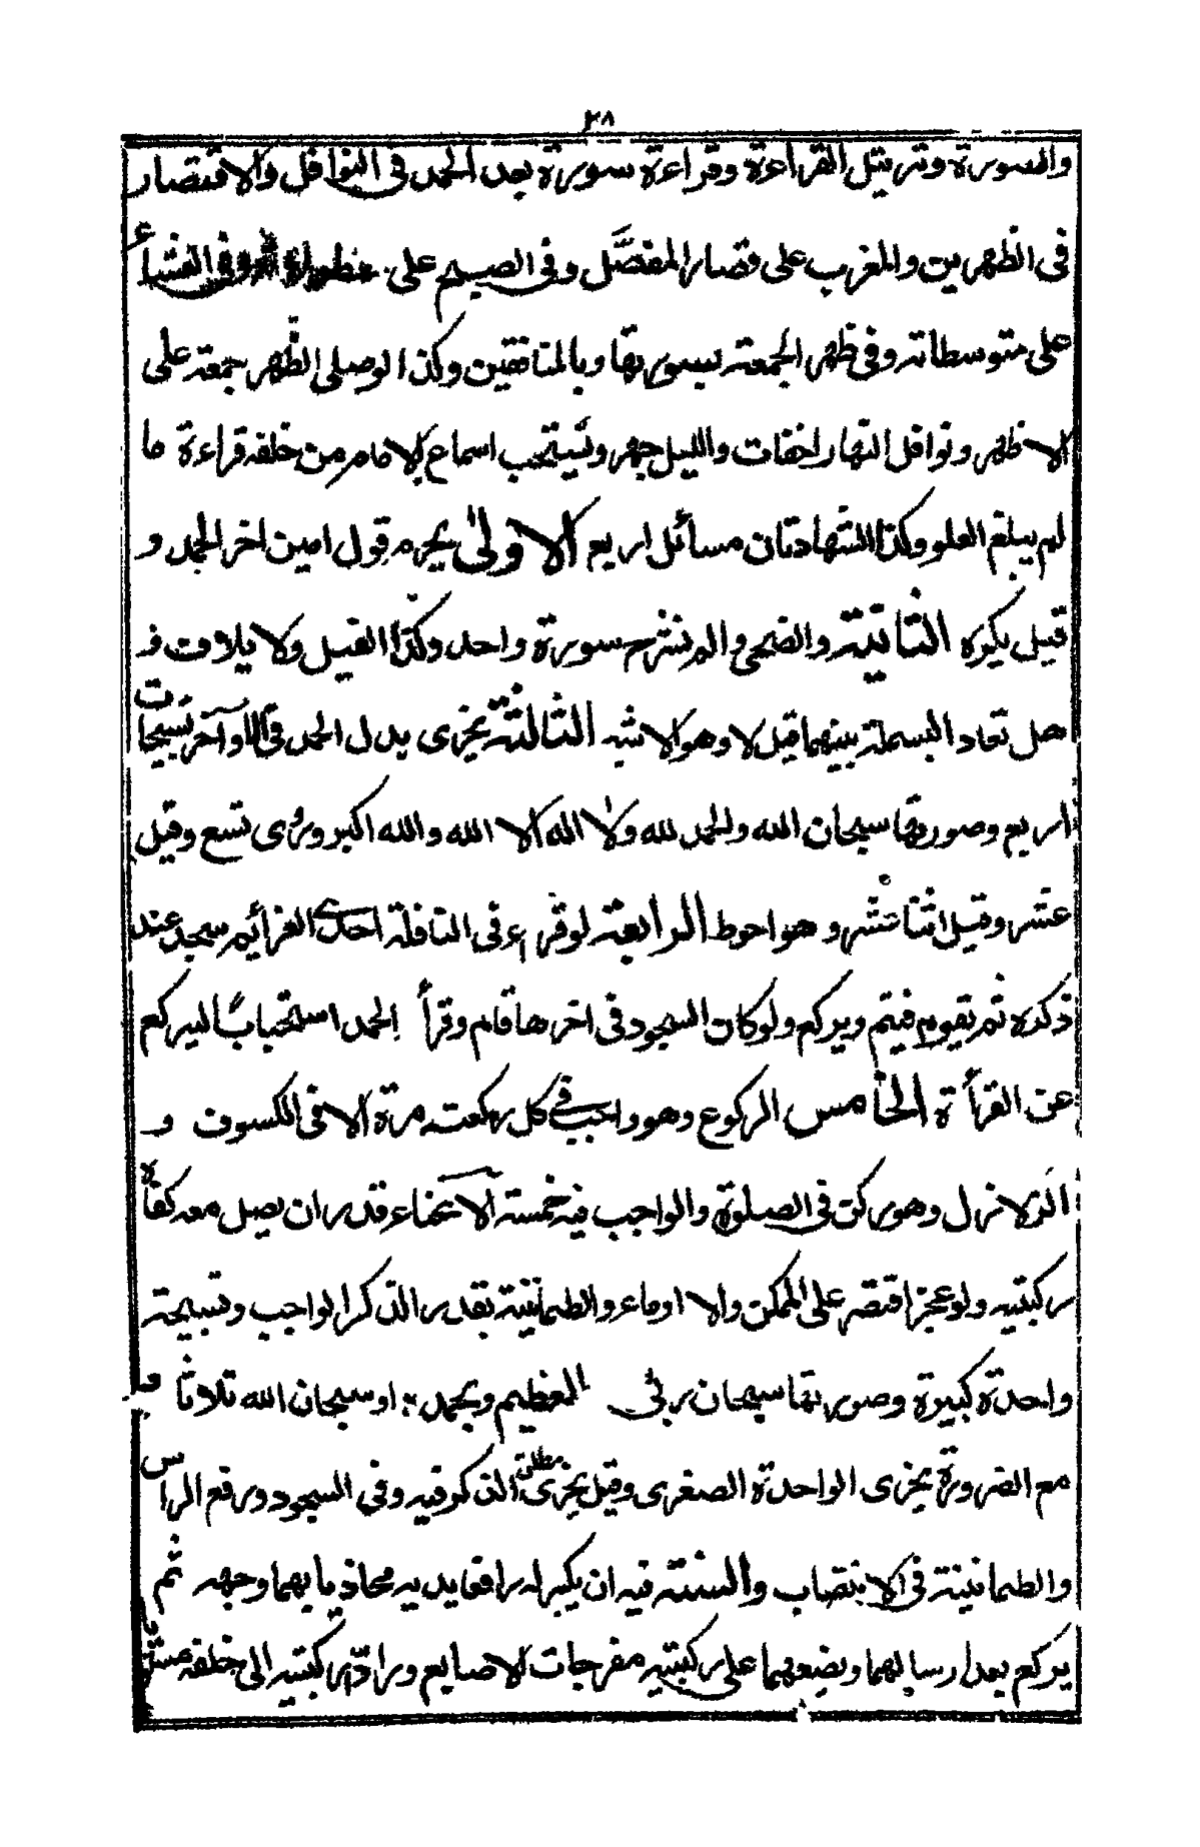 ٢٨
والسورة وترتيل القراءة وقراءة سورة بعد الحمد فى النوافل والاقتصار
فى الظهرين والمغرب على قصار المفصَّل وفى الصبح على وفى العشاء
على متوسطاته وفى ظهر الجمعة بسورتها وبالمنافقين وكذا لو صلى الظهر جمعة على
الاظهر ونوافل النهار اخفات والليل جهر ويستحب اسماع الامام من خلفه قراءة ما
لم يبلغ العلو وكذا الشهادتان مسائل اربع الاولىٰ يحرم قول امين اخر الحمد و
قيل يكره الثانية والضحى والم نشرح سورة واحد وكذا الفيل ولايلاف و
هل تعاد البسملة بينهما قيل لا وهو الاشبه الثالثة يجزى بدل الحمد فى الاواخر تسبيحات
اربع وصورتها سبحان الله والحمد لله ولا اله الا الله والله اكبر وروى تسع وقيل
عشر وقيل اثنا عشر و هو احوط الرابعة لو قرء فى النافلة احدى العزائم سجد عند
ذكره ثم يقوم فيتم ويركع ولو كان السجود فى اخرها قام وقرأ الحمد استحبابًا ليركع
عن القرأة الخامس الركوع وهو واجب فى كل ركعة مرة الا فى الكسوف و
الزلازل وهو ركن فى الصلوة والواجب فيه خمسة الانحناء قدر ان يصل معه كفاه
ركبتيه ولو عجز اقتصر على الممكن والا اوماء والطمانينة بقدر الذكر الواجب وتسبيحة
واحدة كبيرة وصورتها سبحان ربى العظيم وبحمده او سبحان الله ثلاثا و
مع الضرورة يجزى الواحدة الصغرى وقيل يجزى مطلق الذكر فيه وفى السجود ورفع الراس
والطمانينة فى الانتصاب والسنة فيه ان يكبر له رافعا يديه محاذيا بهما وجهه ثم
يركع بعد ارسالهما ويضعهما على ركبتيه مفرجات الاصابع ورادّا ركبتيه الى خلفه